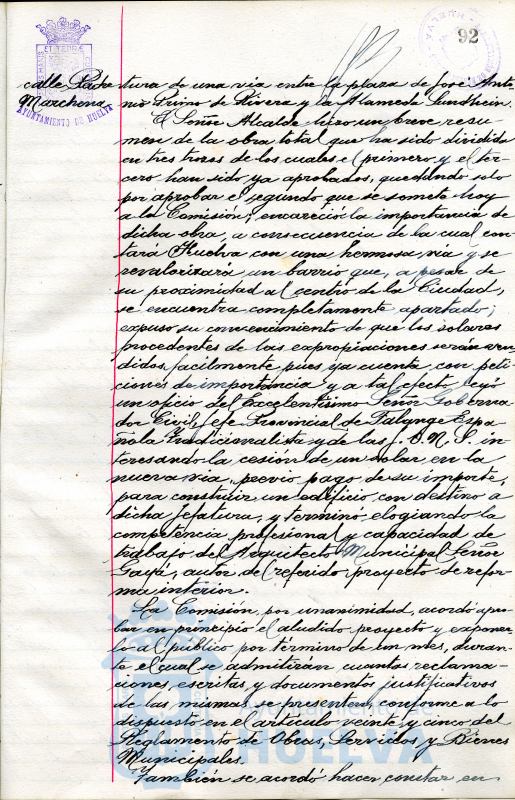 92
calle Padre
Marchena
AYUNTAMIENTO DE HUELVA
tura de una via entre la plaza de José Anto-
nio Primo de Rivera y la Alameda Sundheim.
El Señor Alcalde hizo un breve resu-
men de la obra total que ha sido dividida
en tres trozos de los cuales el primero y el ter-
cero han sido ya aprobados, quedando solo
por aprobar el segundo que se somete hoy
a la Comisión; encareció la importancia de
dicha obra, a consecuencia de la cual con-
tará Huelva con una hermosa via y se
revalorizará un barrio que, a pesar de
su proximidad al centro de la Ciudad,
se encuentra completamente apartado;
expuso su convencimiento de que los solares
procedentes de las expropiaciones serán ven-
didos facilmente pues ya cuenta con peti-
ciones de importancia y a tal efecto leyó
un oficio del Excelentísimo Señor Goberna-
dor Civil, Jefe Provincial de Falange Espa-
ñola Tradicionalista y de las J.O.N.S. in-
teresando la cesión de un solar en la
nueva via, previo pago de su importe,
para construir un edificio con destino a
dicha Jefatura, y terminó elogiando la
competencia profesional y capacidad de
trabajo del Arquitecto Municipal Señor
Gayá, autor del referido proyecto de refor-
ma interior.
La Comisión, por unanimidad, acordó apro-
bar en principio el aludido proyecto y exponer-
lo al público por término de un mes, duran-
te el cual se admitiran cuantas reclama-
ciones, escritas y documentos justificativos
de las mismas se presenten, conforme a lo
dispuesto en el artículo veinte y cinco del
Reglamento de Obras, Servicios y Bienes
Municipales.
También se acordó hacer constar en
Ayuntamiento de
HUELVA